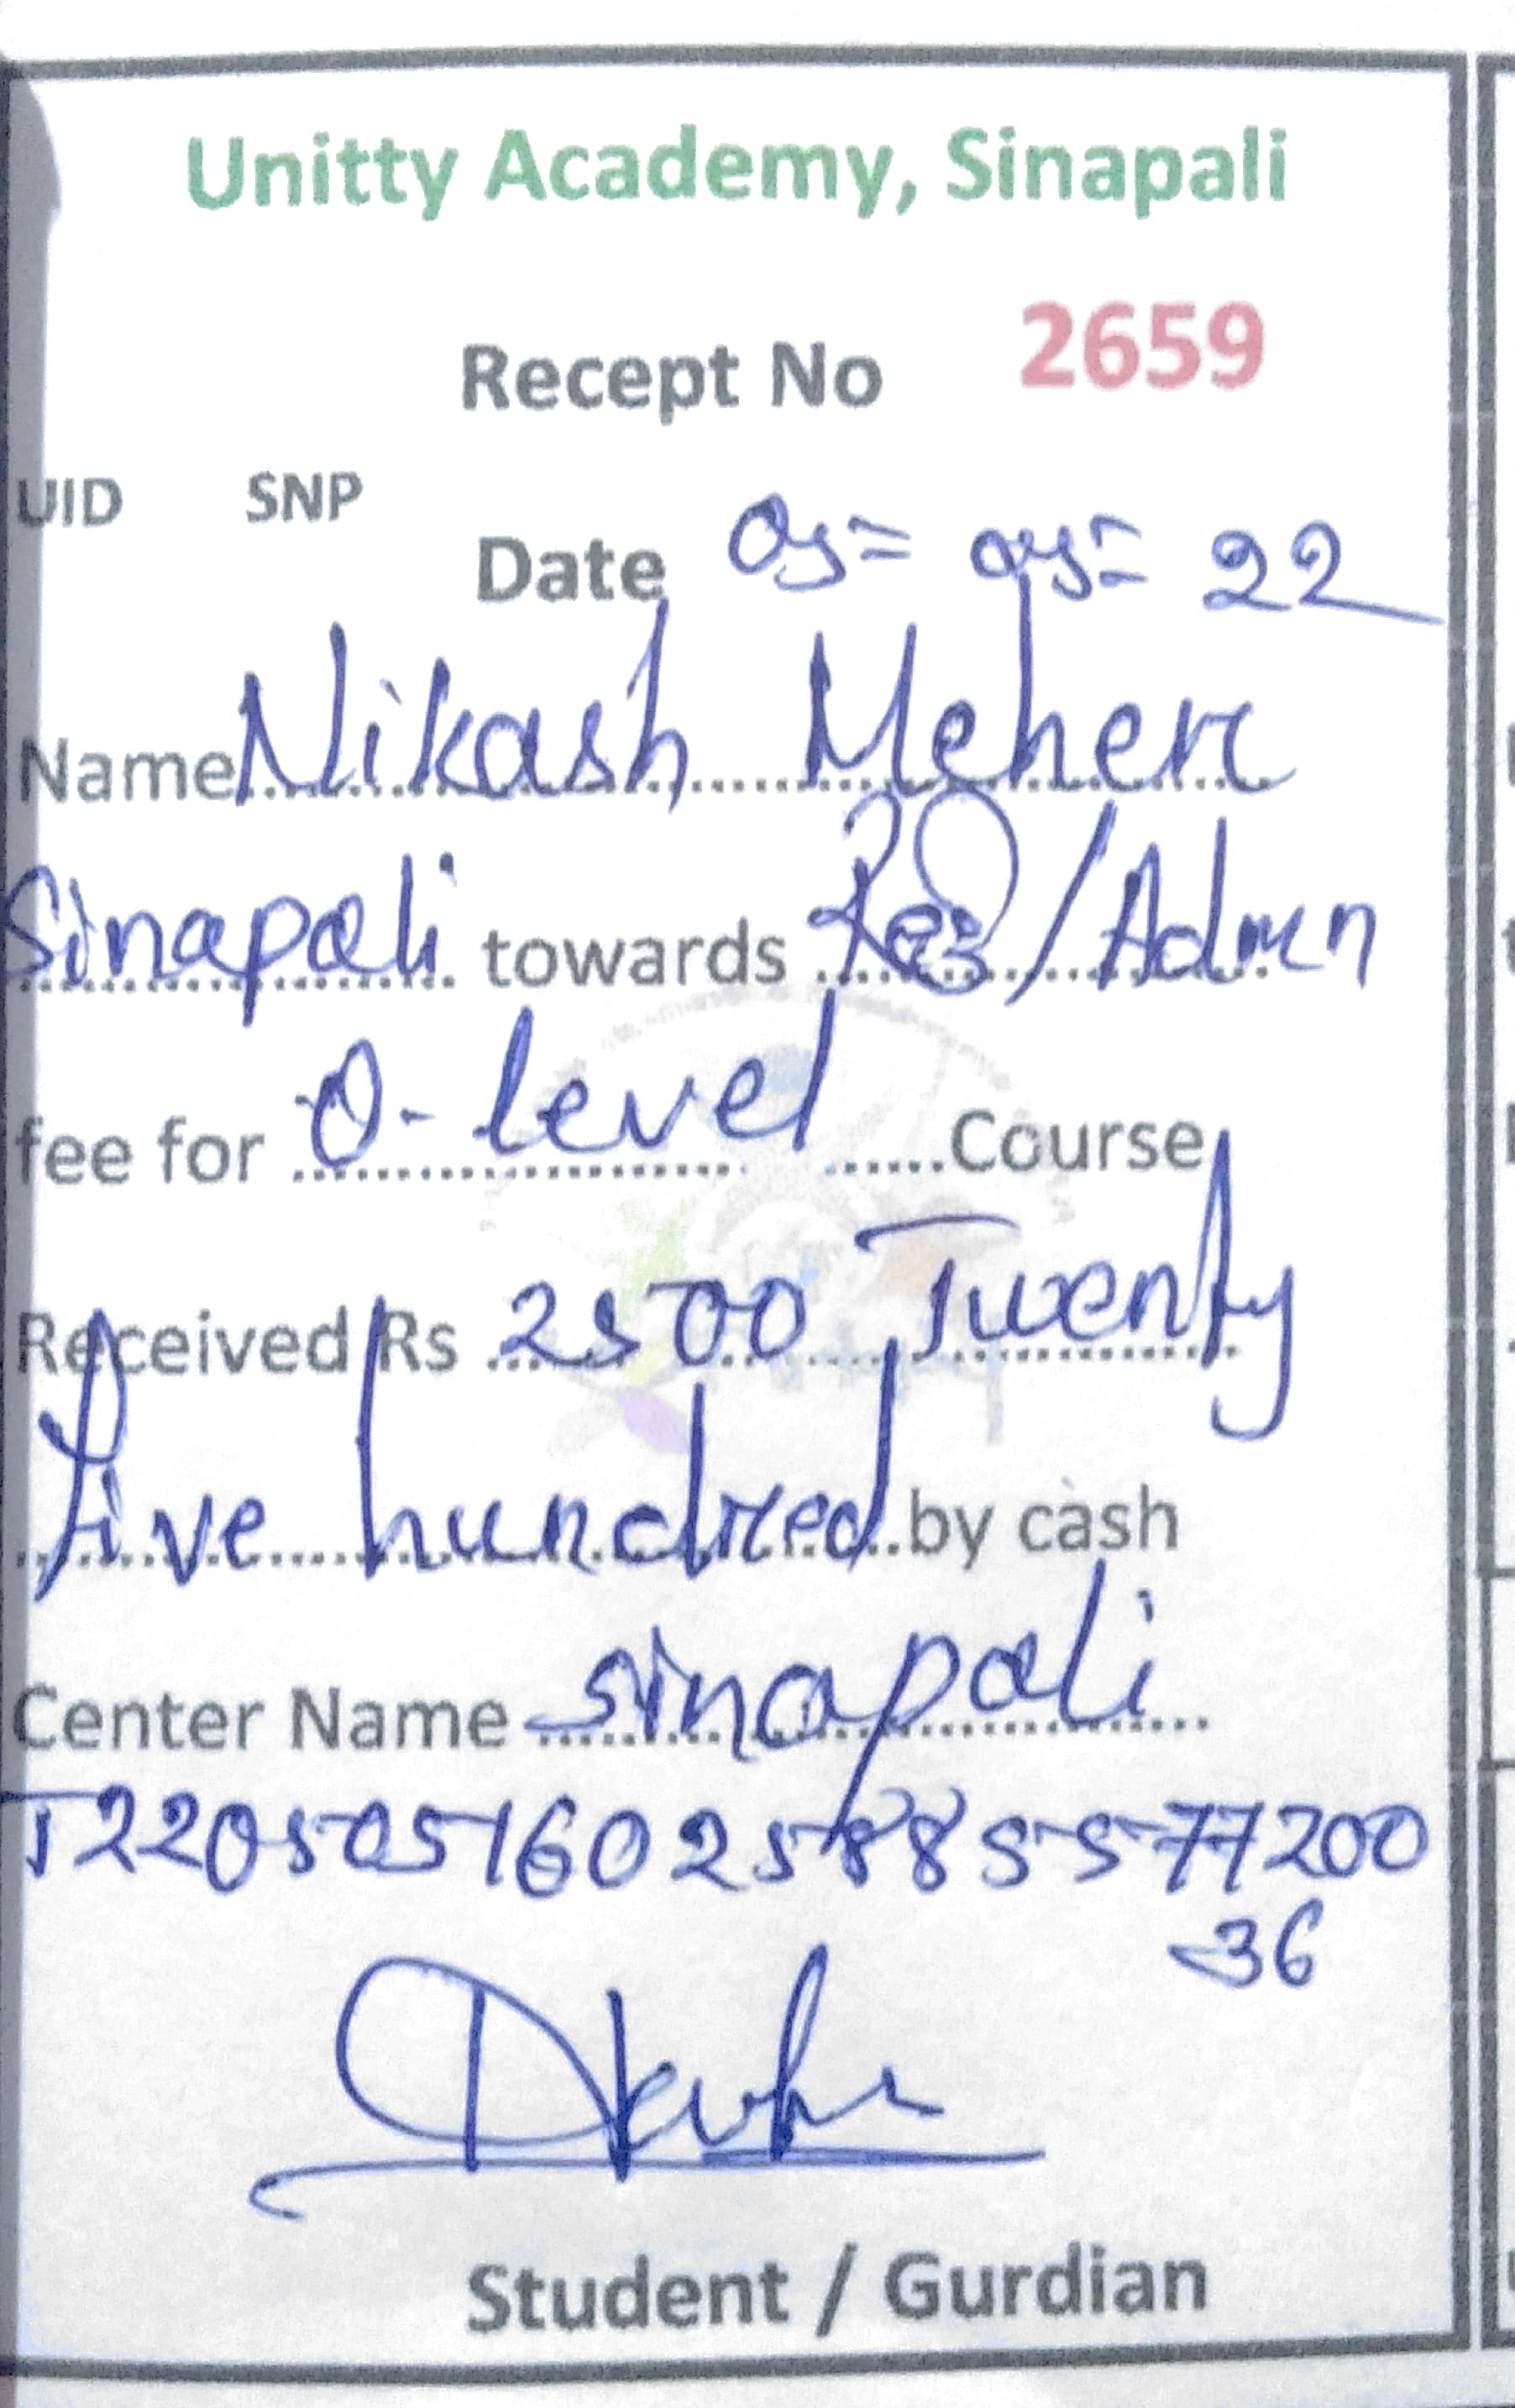 Unitty Academy, Sinapali
Recept No 2659
UID SNP
Date 05= 05= 22
Name Nikash Meher
Sinapali towards Reg/Admn
fee for O-level Course
Received Rs 2500 Twenty
five hundred by cash
Center Name Sinapali
T22050516025885577200
36
Student / Gurdian